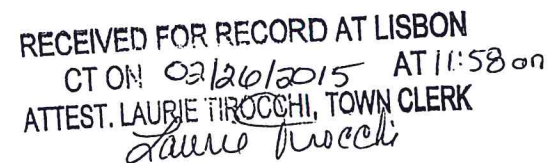 RECEIVED FOR RECORD AT LISBON
CT ON 02/26/2015 AT 11:58 am
ATTEST. LAURIE TIROCCHI, TOWN CLERK
Laurie Tirocchi